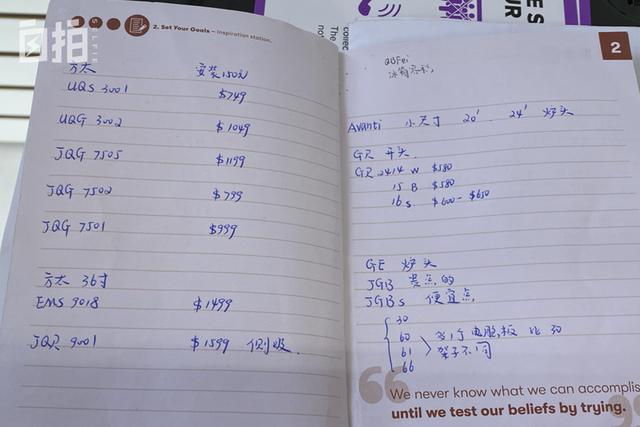 自拍
2. Set Your Goals – Inspiration station.
方太 安装150元
UQS 3001 $749
UQG 3002 $1049
JQG 7505 $1199
JQG 7502 $799
JQG 7501 $999
方太 36寸
EMS 9018 $1499
JQR 9001 $1599 侧吸.
collec
The
no
E S
UR
2
QBFei
冰箱
Avanti 小尺寸 20' . 24' 炉头
GR 开头.
GR 2414 W $580
15 B $580
16 S $600 - $650
GE 炉头
JGB 贵点的
JGBs 便宜点,
30
60 多1个电脑板 比 30
61 架子不同
66
We never know what we can accomplis
until we test our beliefs by trying.